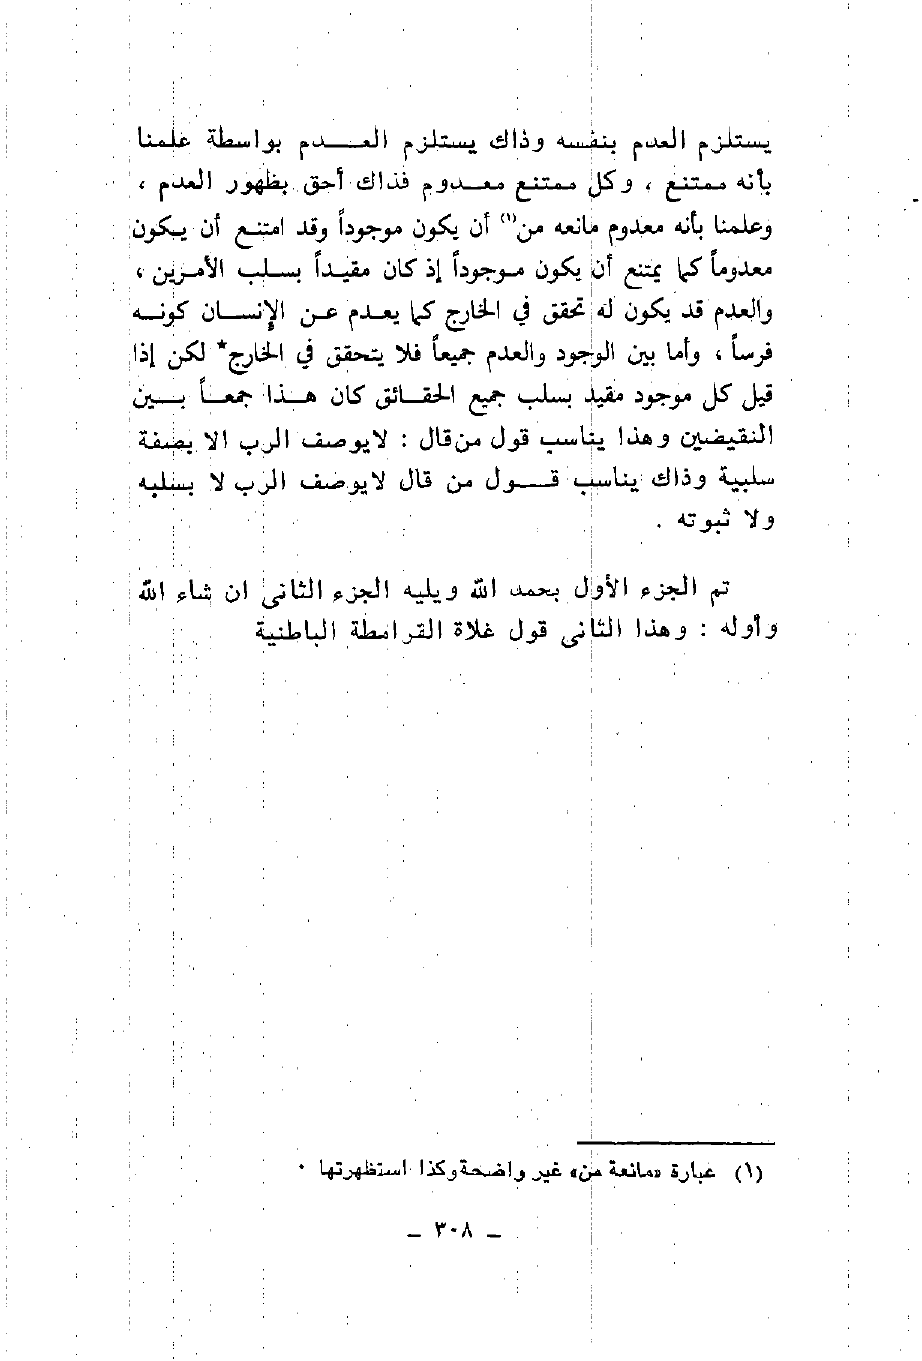 يستلزم العدم بنفسه وذاك يستلزم العـــدم بواسطة علمنا
بأنه ممتنع ، وكل ممتنع معـدوم فذاك أحق بظهور العدم ،
وعلمنا بأنه معدوم مانعه من(١) أن يكون موجوداً وقد امتنع أن يكون
معدوماً كما يمتنع أن يكون موجوداً إذ كان مقيداً بسلب الأمرين ،
والعدم قد يكون له تحقق في الخارج كما يعدم عن الإنسان كونه
فرساً ، وأما بين الوجود والعدم جميعاً فلا يتحقق في الخارج* لكن إذا
قيل كل موجود مقيد بسلب جميع الحقائق كان هذا جمعاً بين
النقيضين وهذا يناسب قول من قال : لايوصف الرب الا بصفة
سلبية وذاك يناسب قول من قال لايوصف الرب لا بسلبه
ولا ثبوته .
تم الجزء الأول بحمد الله ويليه الجزء الثانى ان شاء الله
وأوله : وهذا الثانى قول غلاة القرامطة الباطنية
(١) عبارة «مانعة من» غير واضحة وكذا استظهرتها ٠
_ ٣٠٨ _